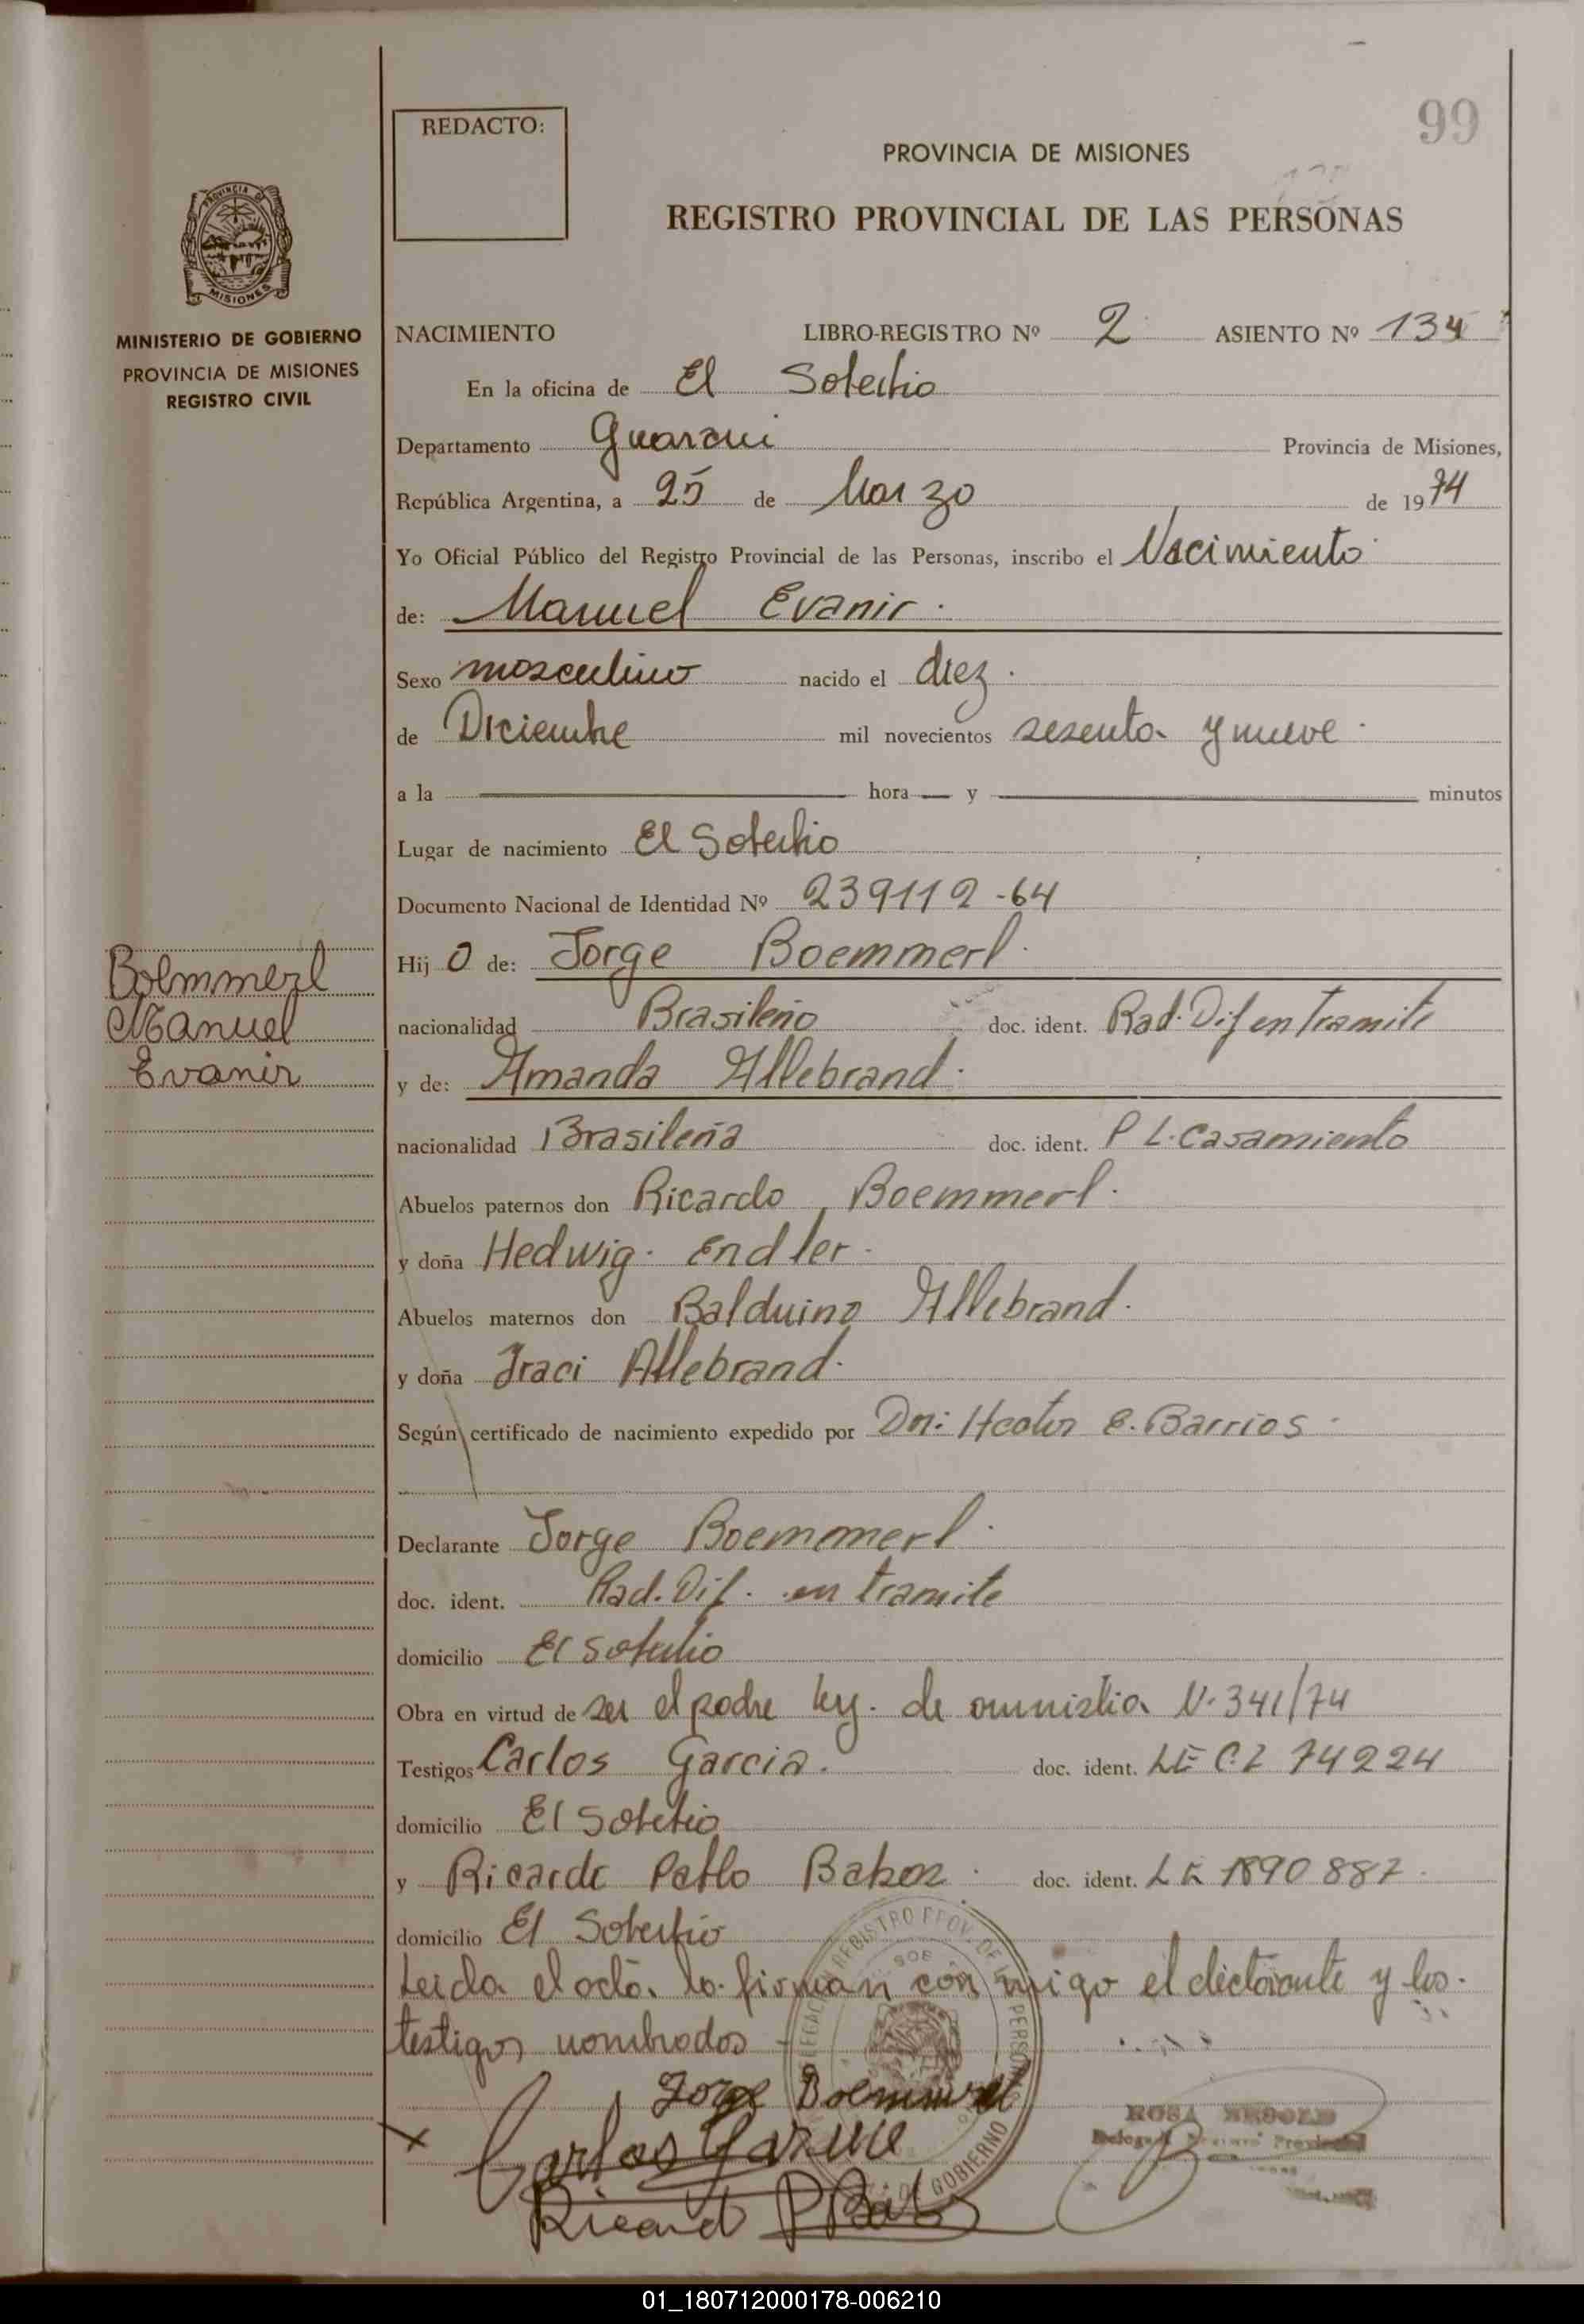 99
REDACTO:
PROVINCIA DE MISIONES
REGISTRO PROVINCIAL DE LAS PERSONAS
PROVINCIA DE
MISIONES
MINISTERIO DE GOBIERNO
PROVINCIA DE MISIONES
REGISTRO CIVIL
NACIMIENTO LIBRO-REGISTRO Nº 2 ASIENTO Nº 134
En la oficina de El Soberbio
Departamento Guarani Provincia de Misiones,
República Argentina, a 25 de Marzo de 1974
Yo Oficial Público del Registro Provincial de las Personas, inscribo el Nacimiento
de: Manuel Evanir.
Sexo masculino nacido el diez.
de Diciembre mil novecientos sesenta y nueve.
a la hora y minutos
Lugar de nacimiento El Soberbio
Documento Nacional de Identidad Nº 239112-64
Boemmerl
Manuel
Evanir
Hijo de: Jorge Boemmerl.
nacionalidad Brasileño doc. ident. Rad. Dif en tramite
y de: Amanda Allebrand.
nacionalidad Brasileña doc. ident. P L. Casamiento
Abuelos paternos don Ricardo Boemmerl.
y doña Hedwig. Endler.
Abuelos maternos don Balduino Allebrand.
y doña Iraci Allebrand.
Según certificado de nacimiento expedido por Dn: Hector E. Barrios.
Declarante Jorge Boemmerl.
doc. ident. Rad. Dif. en tramite
domicilio El Soberbio
Obra en virtud de ser el padre ley. de amnistia N. 341/74
Testigos Carlos Garcia. doc. ident. LE CL 74224
domicilio El Soberbio
y Ricardo Pablo doc. ident. LE 1890887.
domicilio El Soberbio
Leida el acta. la firman con migo el declarante y los.
testigos nombrados
REGISTRO PROV. DE LAS PERSONAS
DE GOBIERNO
Jorge Boemmerl
Carlos Garcia
Ricardo P
ROSA
01_180712000178-006210